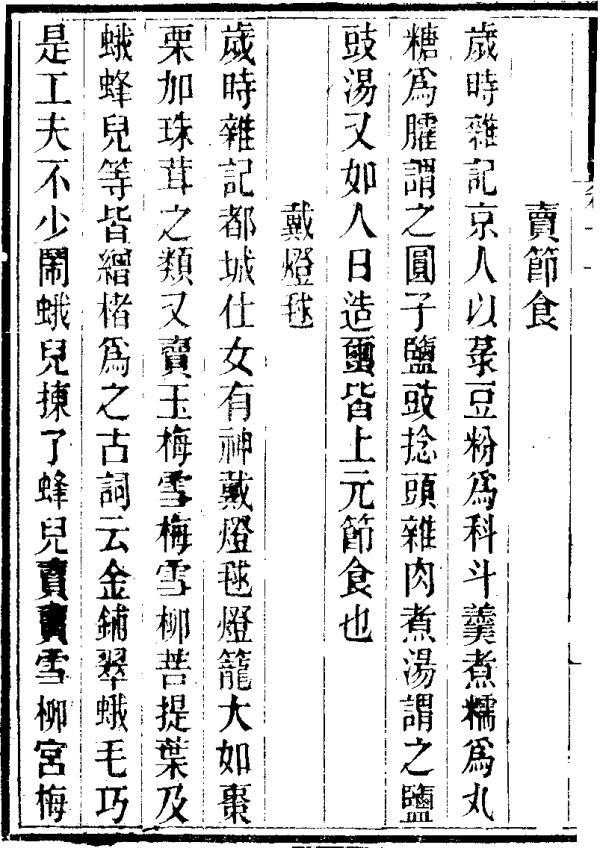 賣節食
歲時雜記京人以菉豆粉爲科斗羹煮糯爲丸
糖爲臛謂之圓子鹽豉捻頭雜肉煮湯謂之鹽
豉湯又如人日造蠒皆上元節食也
戴燈毬
歲時雜記都城仕女有神戴燈毬燈籠大如棗
栗加珠茸之類又賣玉梅雪梅雪柳菩提葉及
蛾蜂兒等皆繒楮爲之古詞云金鋪翠蛾毛巧
是工夫不少鬧蛾兒揀了蜂兒賣賣雪柳宮梅